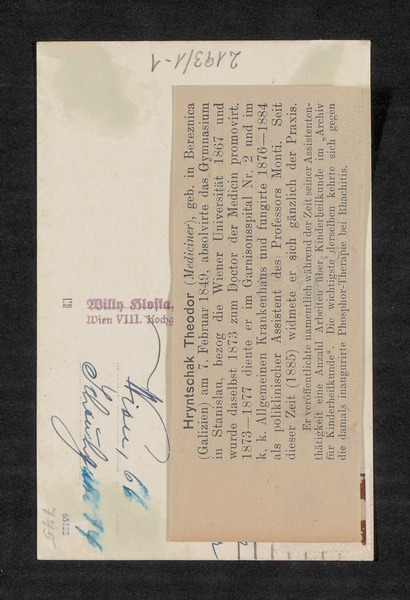 2193/1-1
Hryntschak Theodor (Mediciner), geb. in Bereznica
(Galizien) am 7. Februar 1849, absolvirte das Gymnasium
in Stanislau, bezog die Wiener Universität 1867 und
wurde daselbst 1873 zum Doctor der Medicin promovirt.
1873—1877 diente er im Garnisonsspital Nr. 2 und im
k. k. Allgemeinen Krankenhaus und fungirte 1876—1884
als poliklinischer Assistent des Professors Monti. Seit
dieser Zeit (1885) widmete er sich gänzlich der Praxis.
Er veröffentlichte namentlich während der Zeit seiner Assistenten-
thätigkeit eine Anzahl Arbeiten über Kinderheilkunde im „Archiv
für Kinderheilkunde“. Die wichtigste derselben kehrte sich gegen
die damals inaugurirte Phosphor-Therapie bei Rhachitis.
Willy Klosta.
Wien VIII. Kochg
Wien,
65122